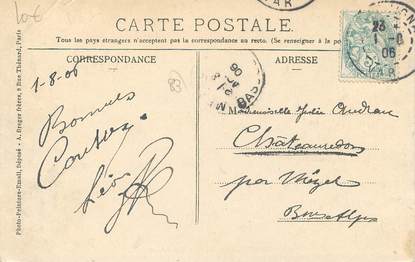 10€
CARTE POSTALE
Tous les pays étrangers n'acceptent pas la correspondance au recto. (Se renseigner à la po
CORRESPONDANCE
ADRESSE
1-8-06
83
Bonnes
Léon
Mademoiselle Julie
Châteauredon
par Mézel
Bses Alpes
Photo-Peinture-Email, Déposé - A. Breger Frères, 9 Rue Thénard, Paris